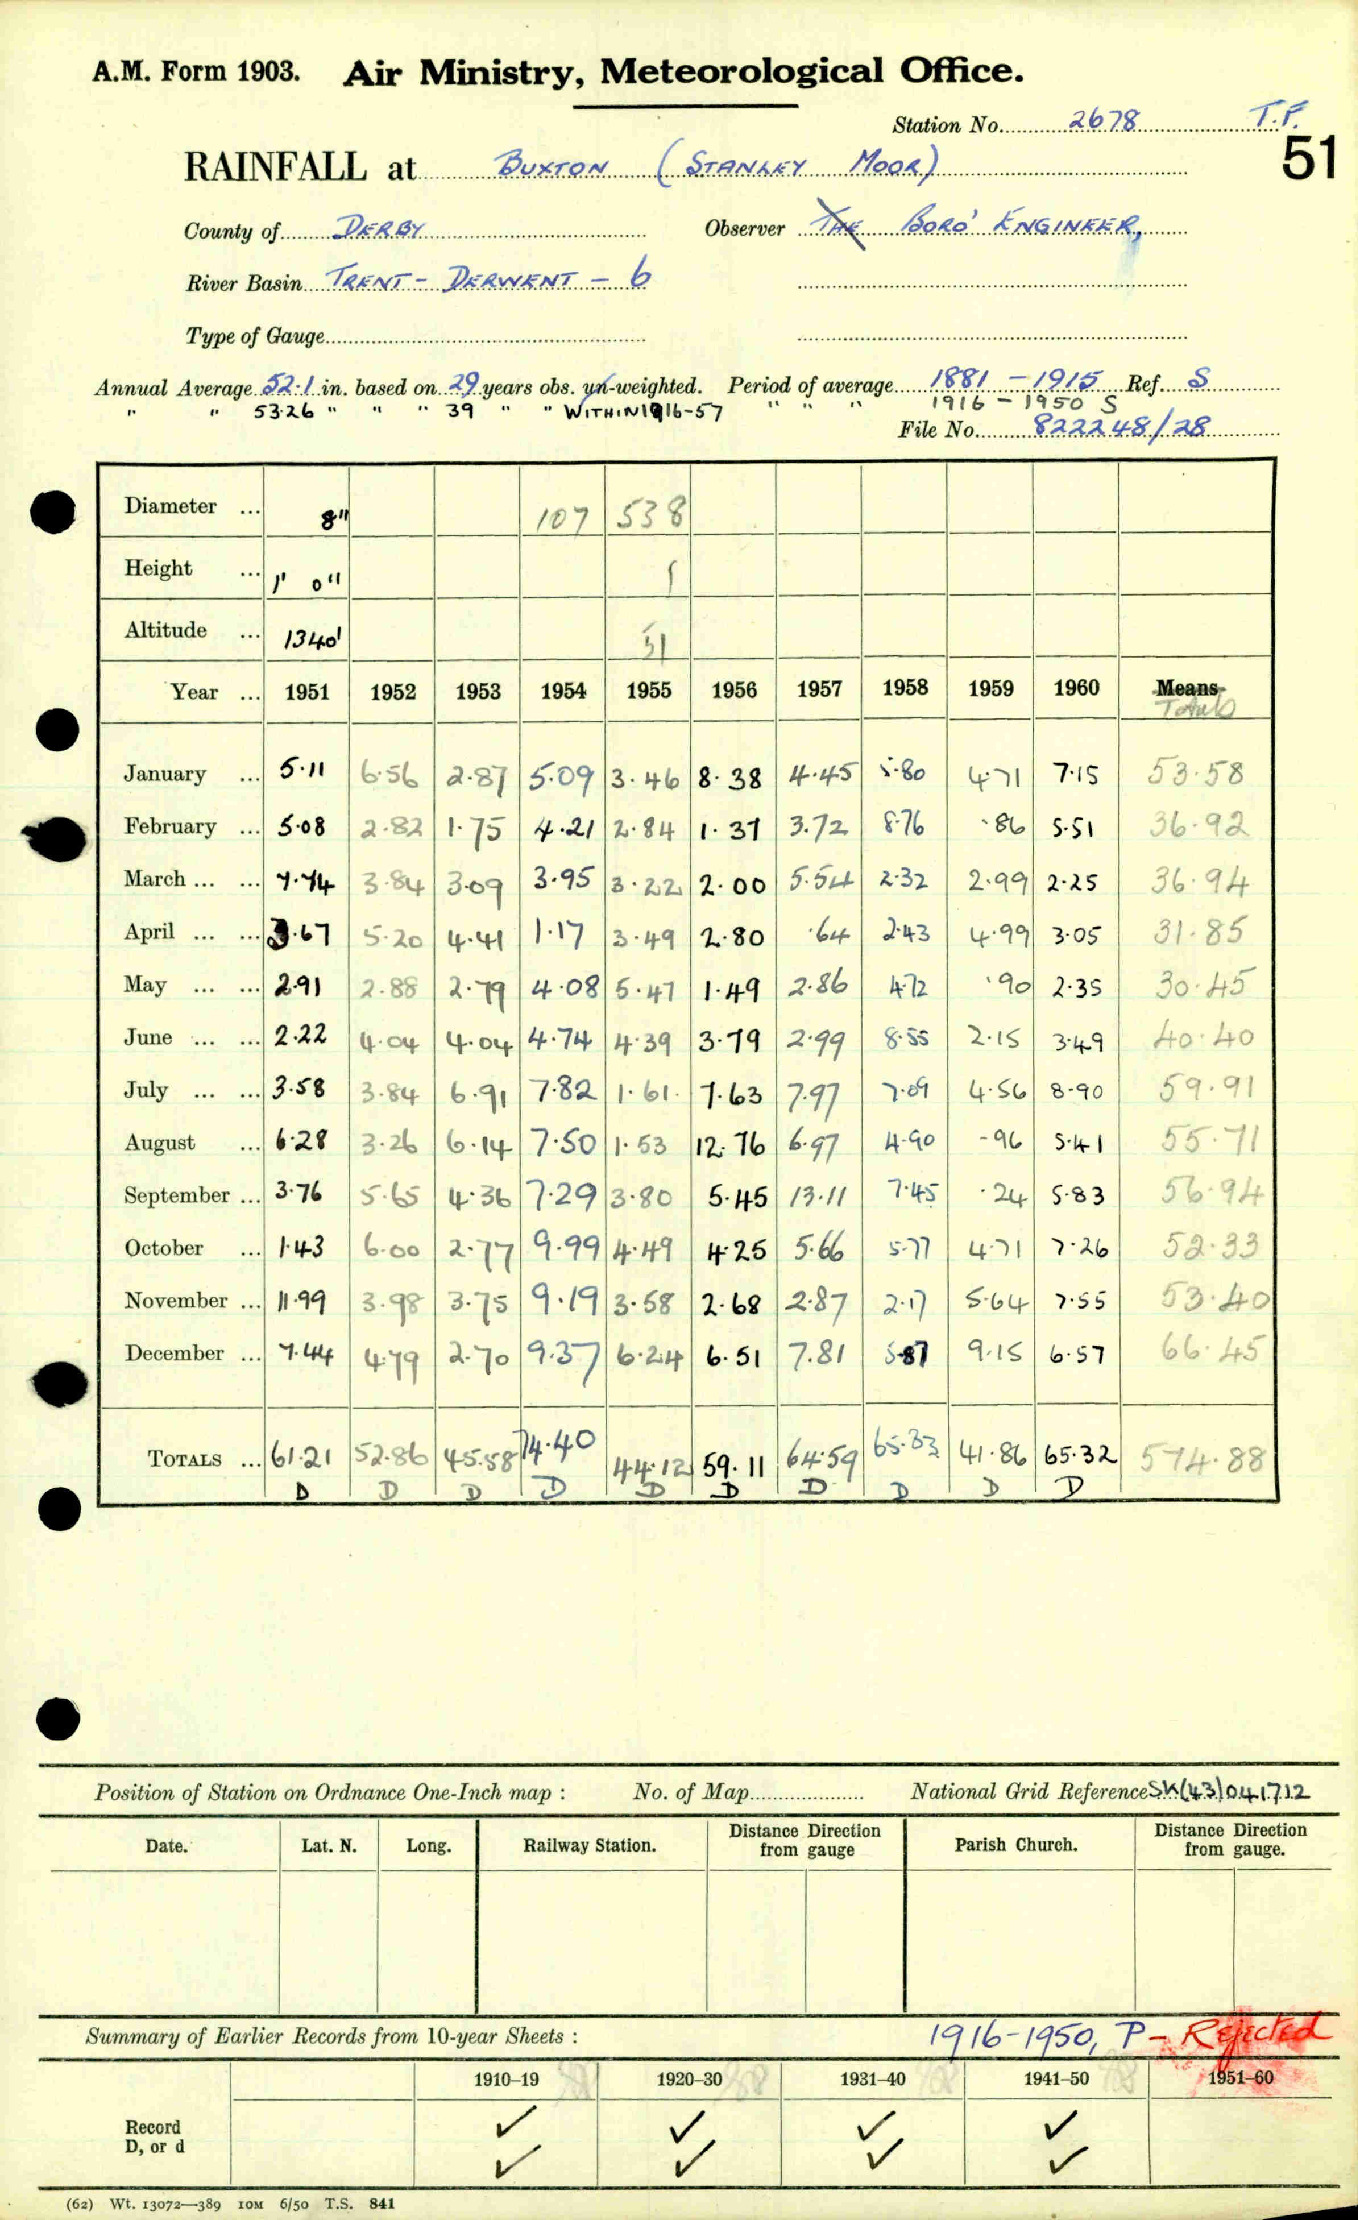 A.M. Form 1903. Air Ministry, Meteorological Office.
Station No. 2678 T.F.
51
RAINFALL at BUXTON (STANLEY MOOR)
County of DERBY Observer THE BORO' ENGINEER,
River Basin TRENT - DERWENT - 6
Type of Gauge
Annual Average 52·1 in. based on 29 years obs. un-weighted. Period of average 1881 - 1915 Ref. S
" " 53·26 " " " 39 " " WITHIN 1916-57 " " " 1916 - 1950 S
File No. 822248/28
Diameter ... 8" 107 538
Height ... 1' 0" 1
Altitude ... 1340' 51
Year ... 1951 1952 1953 1954 1955 1956 1957 1958 1959 1960 Means Totals
January ... 5·11 6·56 2·87 5·09 3·46 8·38 4·45 5·80 4·71 7·15 53·58
February ... 5·08 2·82 1·75 4·21 2·84 1·37 3·72 8·76 ·86 5·51 36·92
March ... ... 7·74 3·84 3·09 3·95 3·22 2·00 5·54 2·32 2·99 2·25 36·94
April ... ... 3·67 5·20 4·41 1·17 3·49 2·80 ·64 2·43 4·99 3·05 31·85
May ... ... 2·91 2·88 2·79 4·08 5·47 1·49 2·86 4·72 ·90 2·35 30·45
June ... ... 2·22 4·04 4·04 4·74 4·39 3·79 2·99 8·55 2·15 3·49 40·40
July ... ... 3·58 3·84 6·91 7·82 1·61 7·63 7·97 7·09 4·56 8·90 59·91
August ... 6·28 3·26 6·14 7·50 1·53 12·76 6·97 4·90 ·96 5·41 55·71
September ... 3·76 5·65 4·36 7·29 3·80 5·45 13·11 7·45 ·24 5·83 56·94
October ... 1·43 6·00 2·77 9·99 4·49 4·25 5·66 5·77 4·71 7·26 52·33
November ... 11·99 3·98 3·75 9·19 3·58 2·68 2·87 2·17 5·64 7·55 53·40
December ... 7·44 4·79 2·70 9·37 6·24 6·51 7·81 5·87 9·15 6·57 66·45
TOTALS ... 61·21 52·86 45·58 74·40 44·12 59·11 64·59 65·83 41·86 65·32 574·88
D D D D D D D D D D
Position of Station on Ordnance One-Inch map : No. of Map National Grid Reference SK(43)041712
Date. Lat. N. Long. Railway Station. Distance from gauge Direction Parish Church. Distance from gauge. Direction
Summary of Earlier Records from 10-year Sheets : 1916-1950, P - Rejected
1910–19 1920–30 1931–40 1941–50 1951–60
Record ✓ ✓ ✓ ✓
D, or d ✓ ✓ ✓ ✓
(62) Wt. 13072—389 10M 6/50 T.S. 841